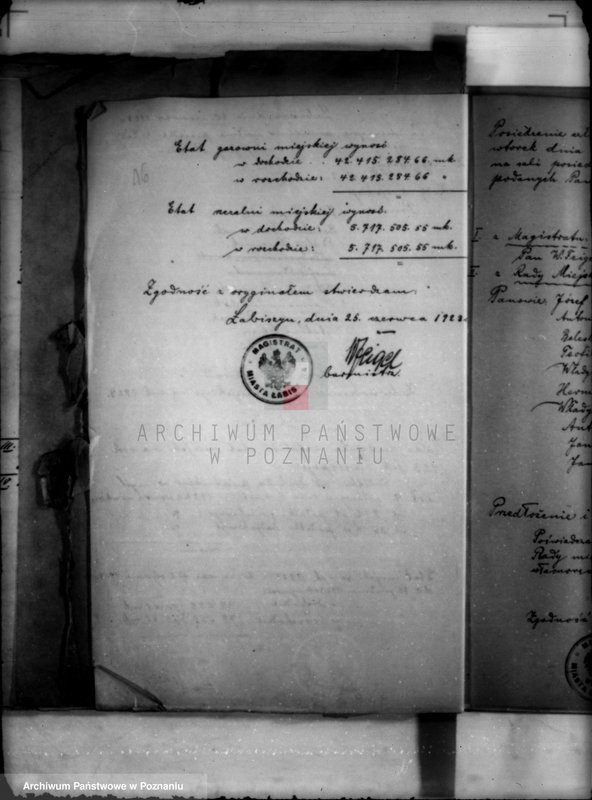 Etat gazowni miejskiej wynosi
w dochodzie: 42.415.284.66 mk.
w rozchodzie: 42.415.284.66 "
Etat rzeźalni miejskiej wynosi:
w dochodzie: 5.717.505.55 mk.
w rozchodzie: 5.717.505.55 mk.
Zgodność z oryginałem stwierdzam:
Łabiszyn, dnia 25. czerwca 1923.
burmistrz.
MAGISTRAT
MIASTA ŁABIS
ARCHIWUM PAŃSTWOWE
W POZNANIU
Posiedzenie
wtorek dnia
na sali posied
podanych Pan
I z Magistratu:
Pan W. Feige
II z Rady Miejs
Panowie Józef
Anton
Bolesł
Teofi
Włady
Herm
Włady
Ant
Jan
Jan
Przedłożenie i
Poświadcza
Rady mi
własnorę
Zgodność
Archiwum Państwowe w Poznaniu